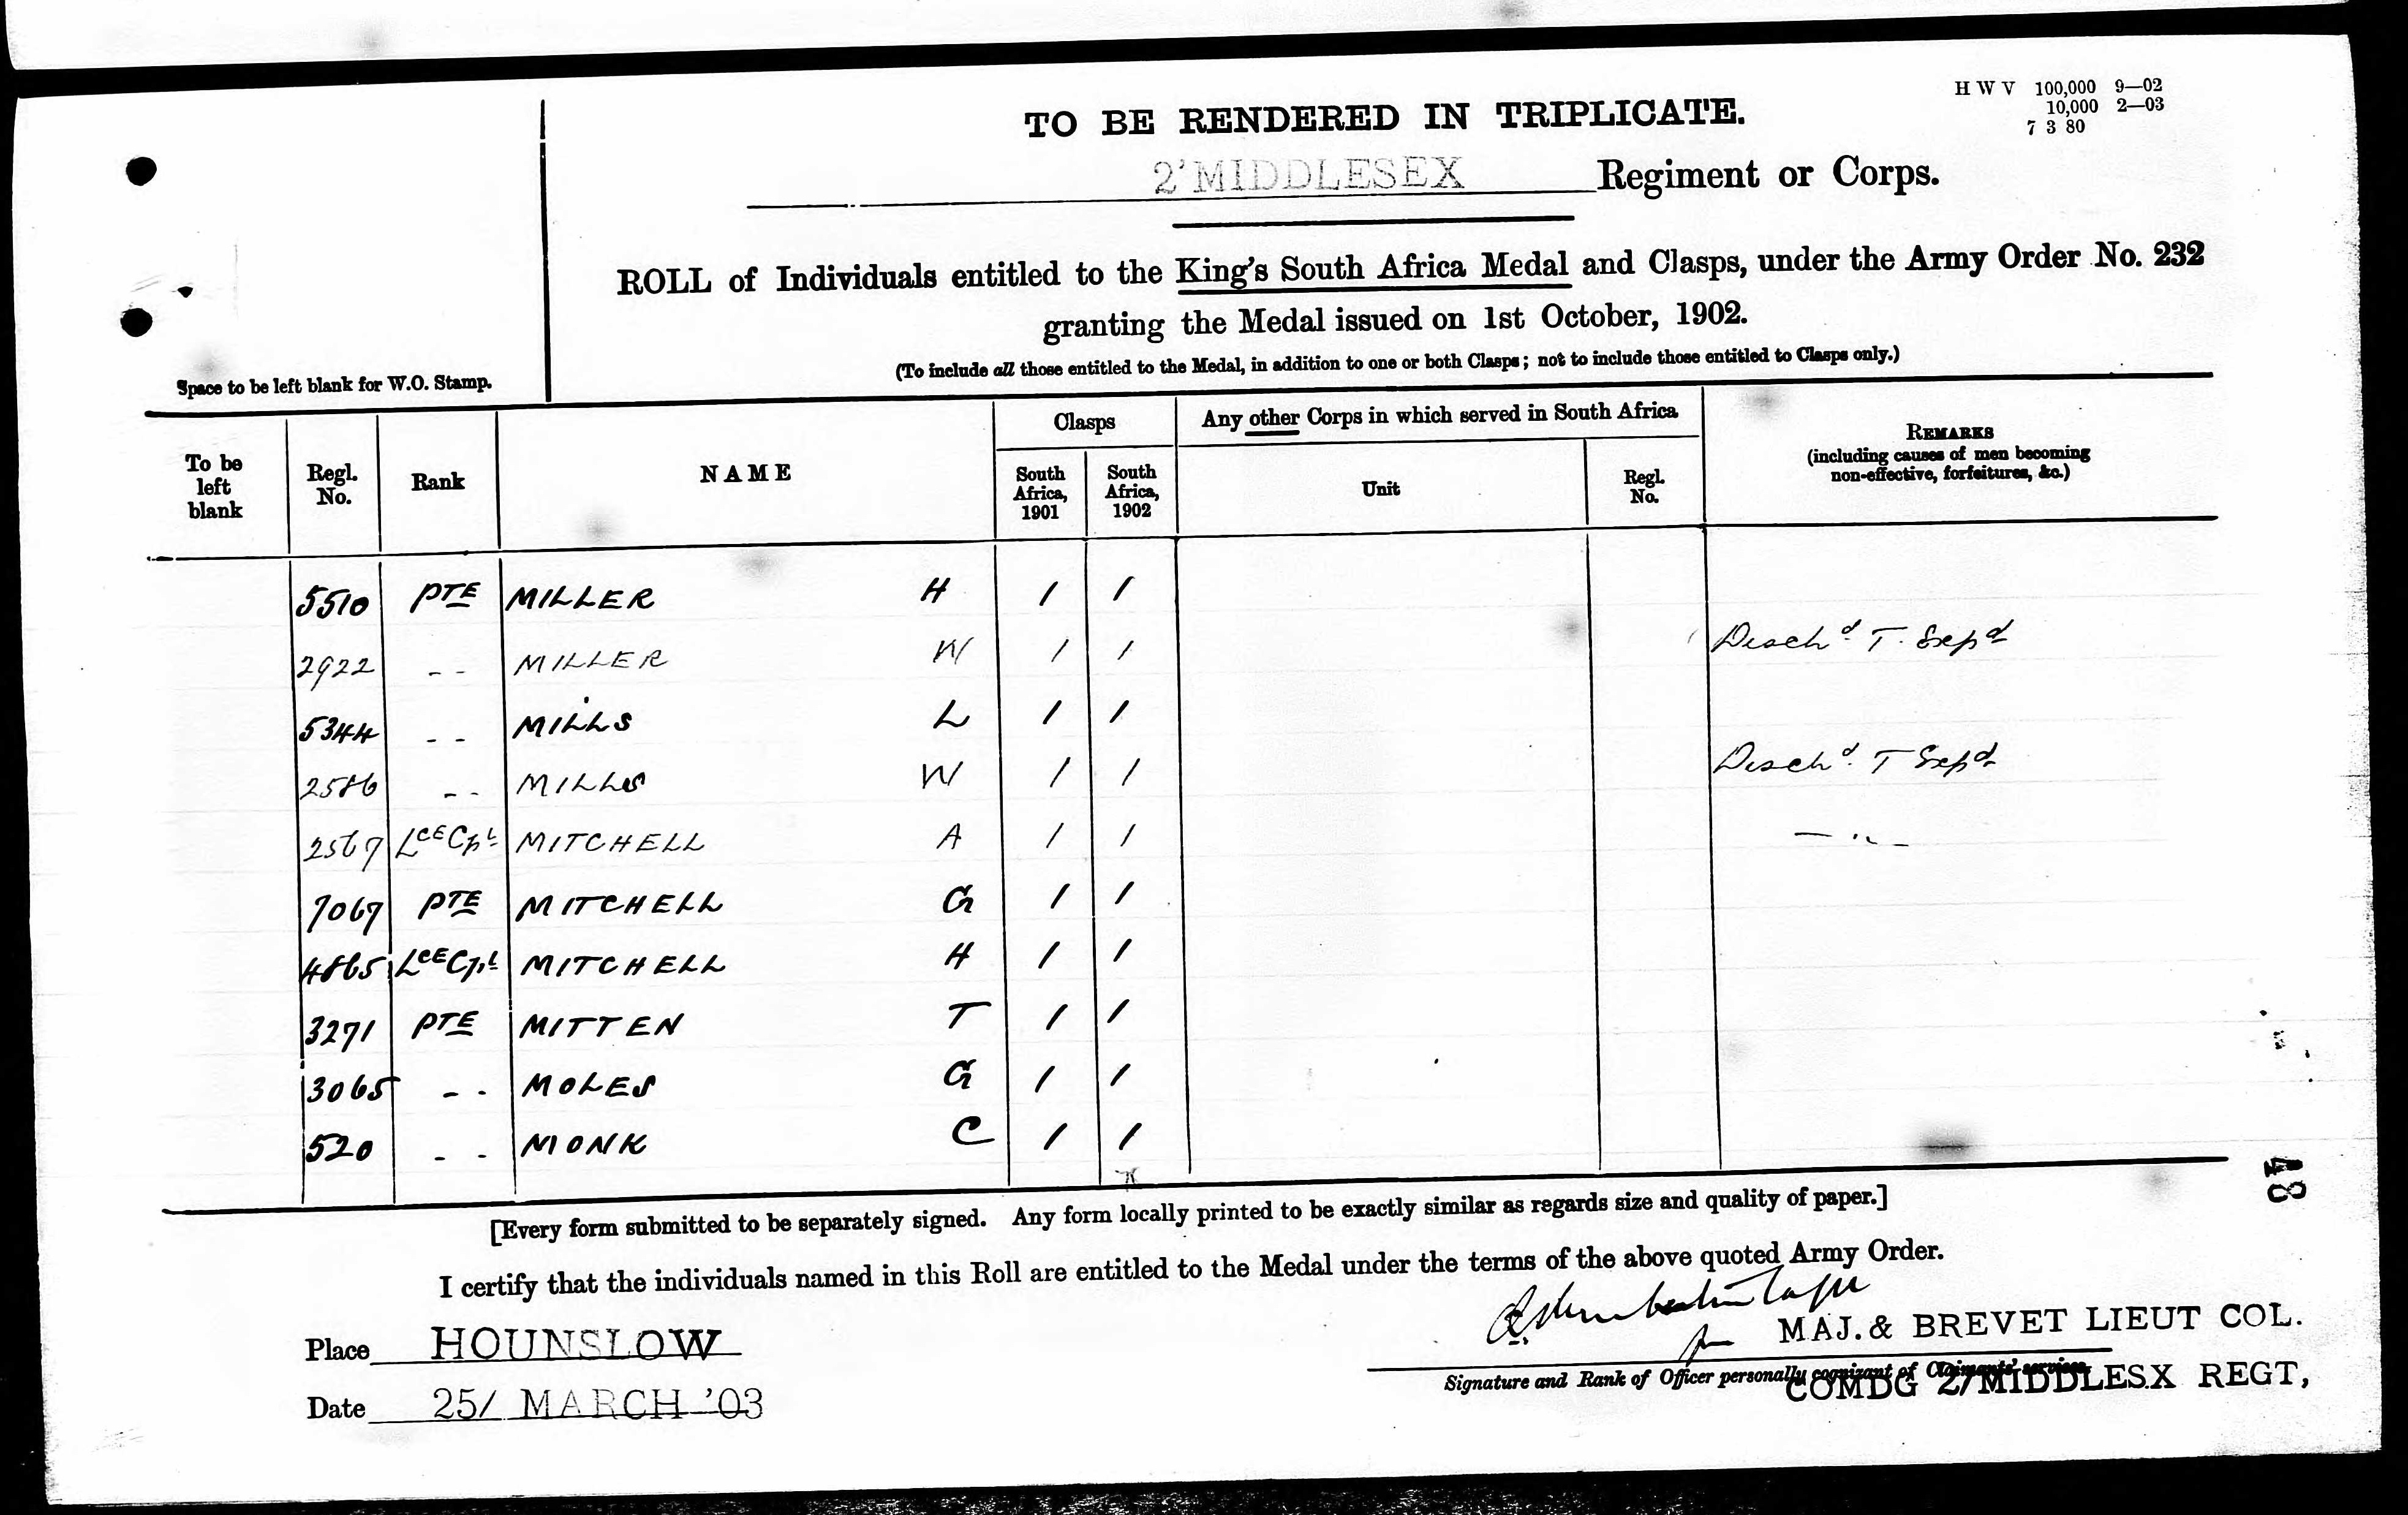 H W V 100,000 9—02
10,000 2—03
7 3 80
TO BE RENDERED IN TRIPLICATE.
2'MIDDLESEX Regiment or Corps.
ROLL of Individuals entitled to the King's South Africa Medal and Clasps, under the Army Order No. 232
granting the Medal issued on 1st October, 1902.
(To include all those entitled to the Medal, in addition to one or both Clasps; not to include those entitled to Clasps only.)
Space to be left blank for W.O. Stamp.
To be left blank
Regl. No.
Rank
NAME
Clasps
South Africa, 1901
South Africa, 1902
Any other Corps in which served in South Africa
Unit
Regl. No.
REMARKS
(including causes of men becoming
non-effective, forfeitures, &c.)
5510 PTE MILLER H / /
2922 - - MILLER W / / Disch d. T. Exp d
5344 - - MILLS L / /
2586 - - MILLS W / / Disch d. T Exp d
2567 LCE Cpl MITCHELL A / / — " —
7067 PTE MITCHELL G / /
4865 LCE Cpl MITCHELL H / /
3271 PTE MITTEN T / /
3065 - - MOLES G / /
520 - - MONK C / /
84
[Every form submitted to be separately signed. Any form locally printed to be exactly similar as regards size and quality of paper.]
I certify that the individuals named in this Roll are entitled to the Medal under the terms of the above quoted Army Order.
Place HOUNSLOW
for MAJ. & BREVET LIEUT COL.
Signature and Rank of Officer personally cognizant of Claimants' services.
COMDG 2/MIDDLESX REGT,
Date 25/ MARCH '03